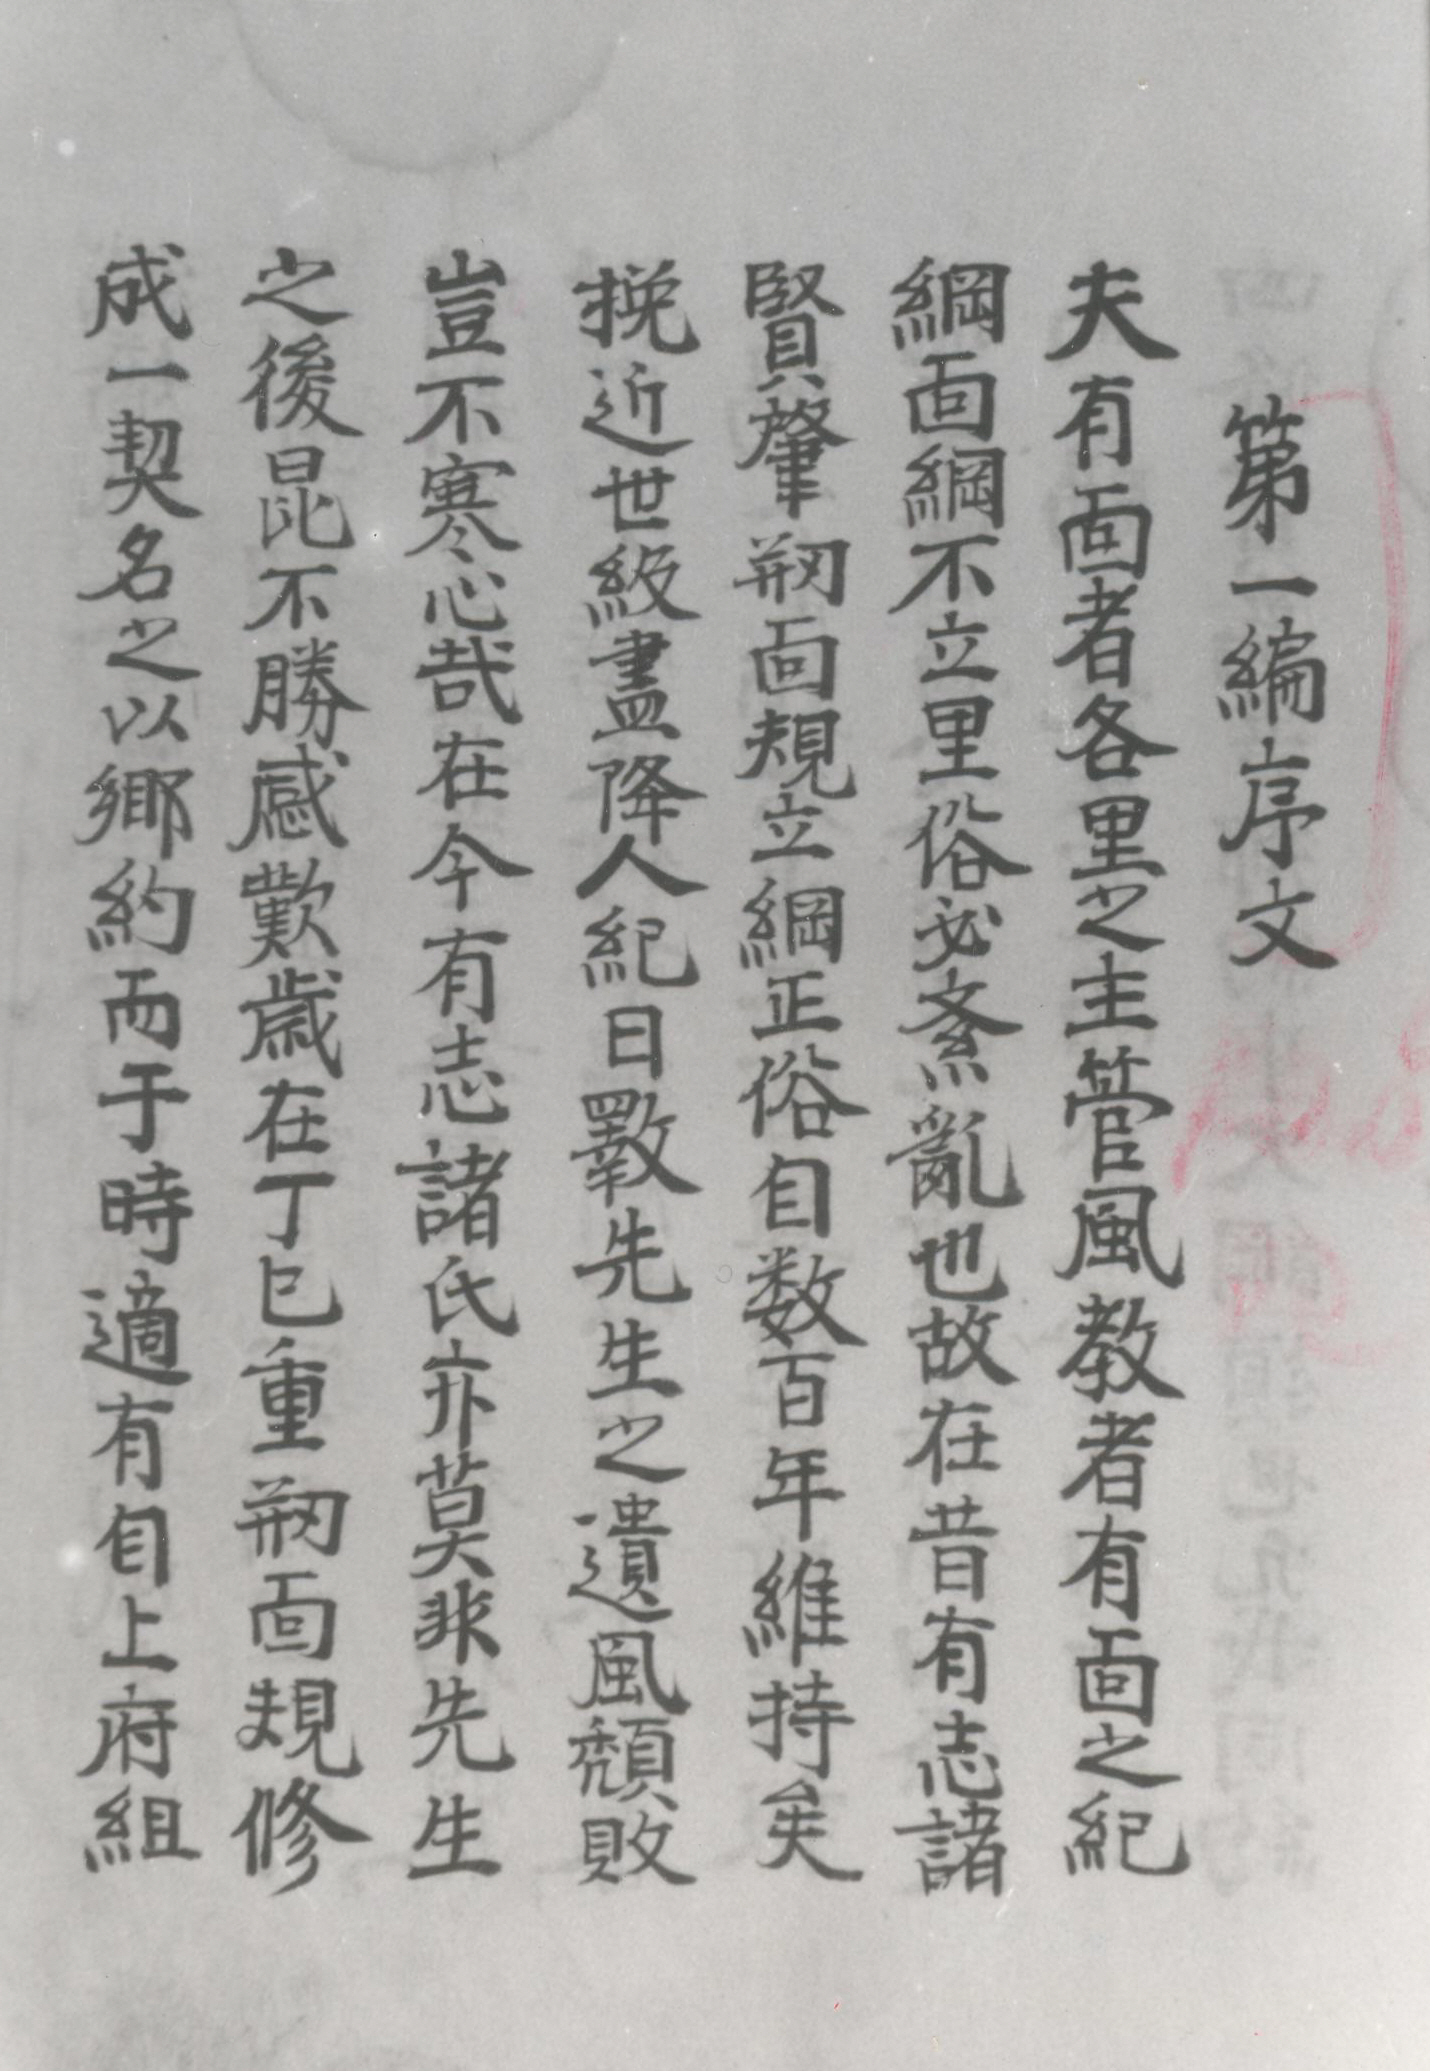 第一編序文
夫有面者各里之主管風教者有面之紀
綱面綱不立里俗必紊亂也故在昔有志諸
賢肇刱面規立綱正俗自数百年維持矣
挽近世級盡降人紀日斁先生之遺風頹敗
豈不寒心哉在今有志諸氏亦莫非先生
之後昆不勝感歎歲在丁巳重刱面規修
成一契名之以鄉約而于時適有自上府組